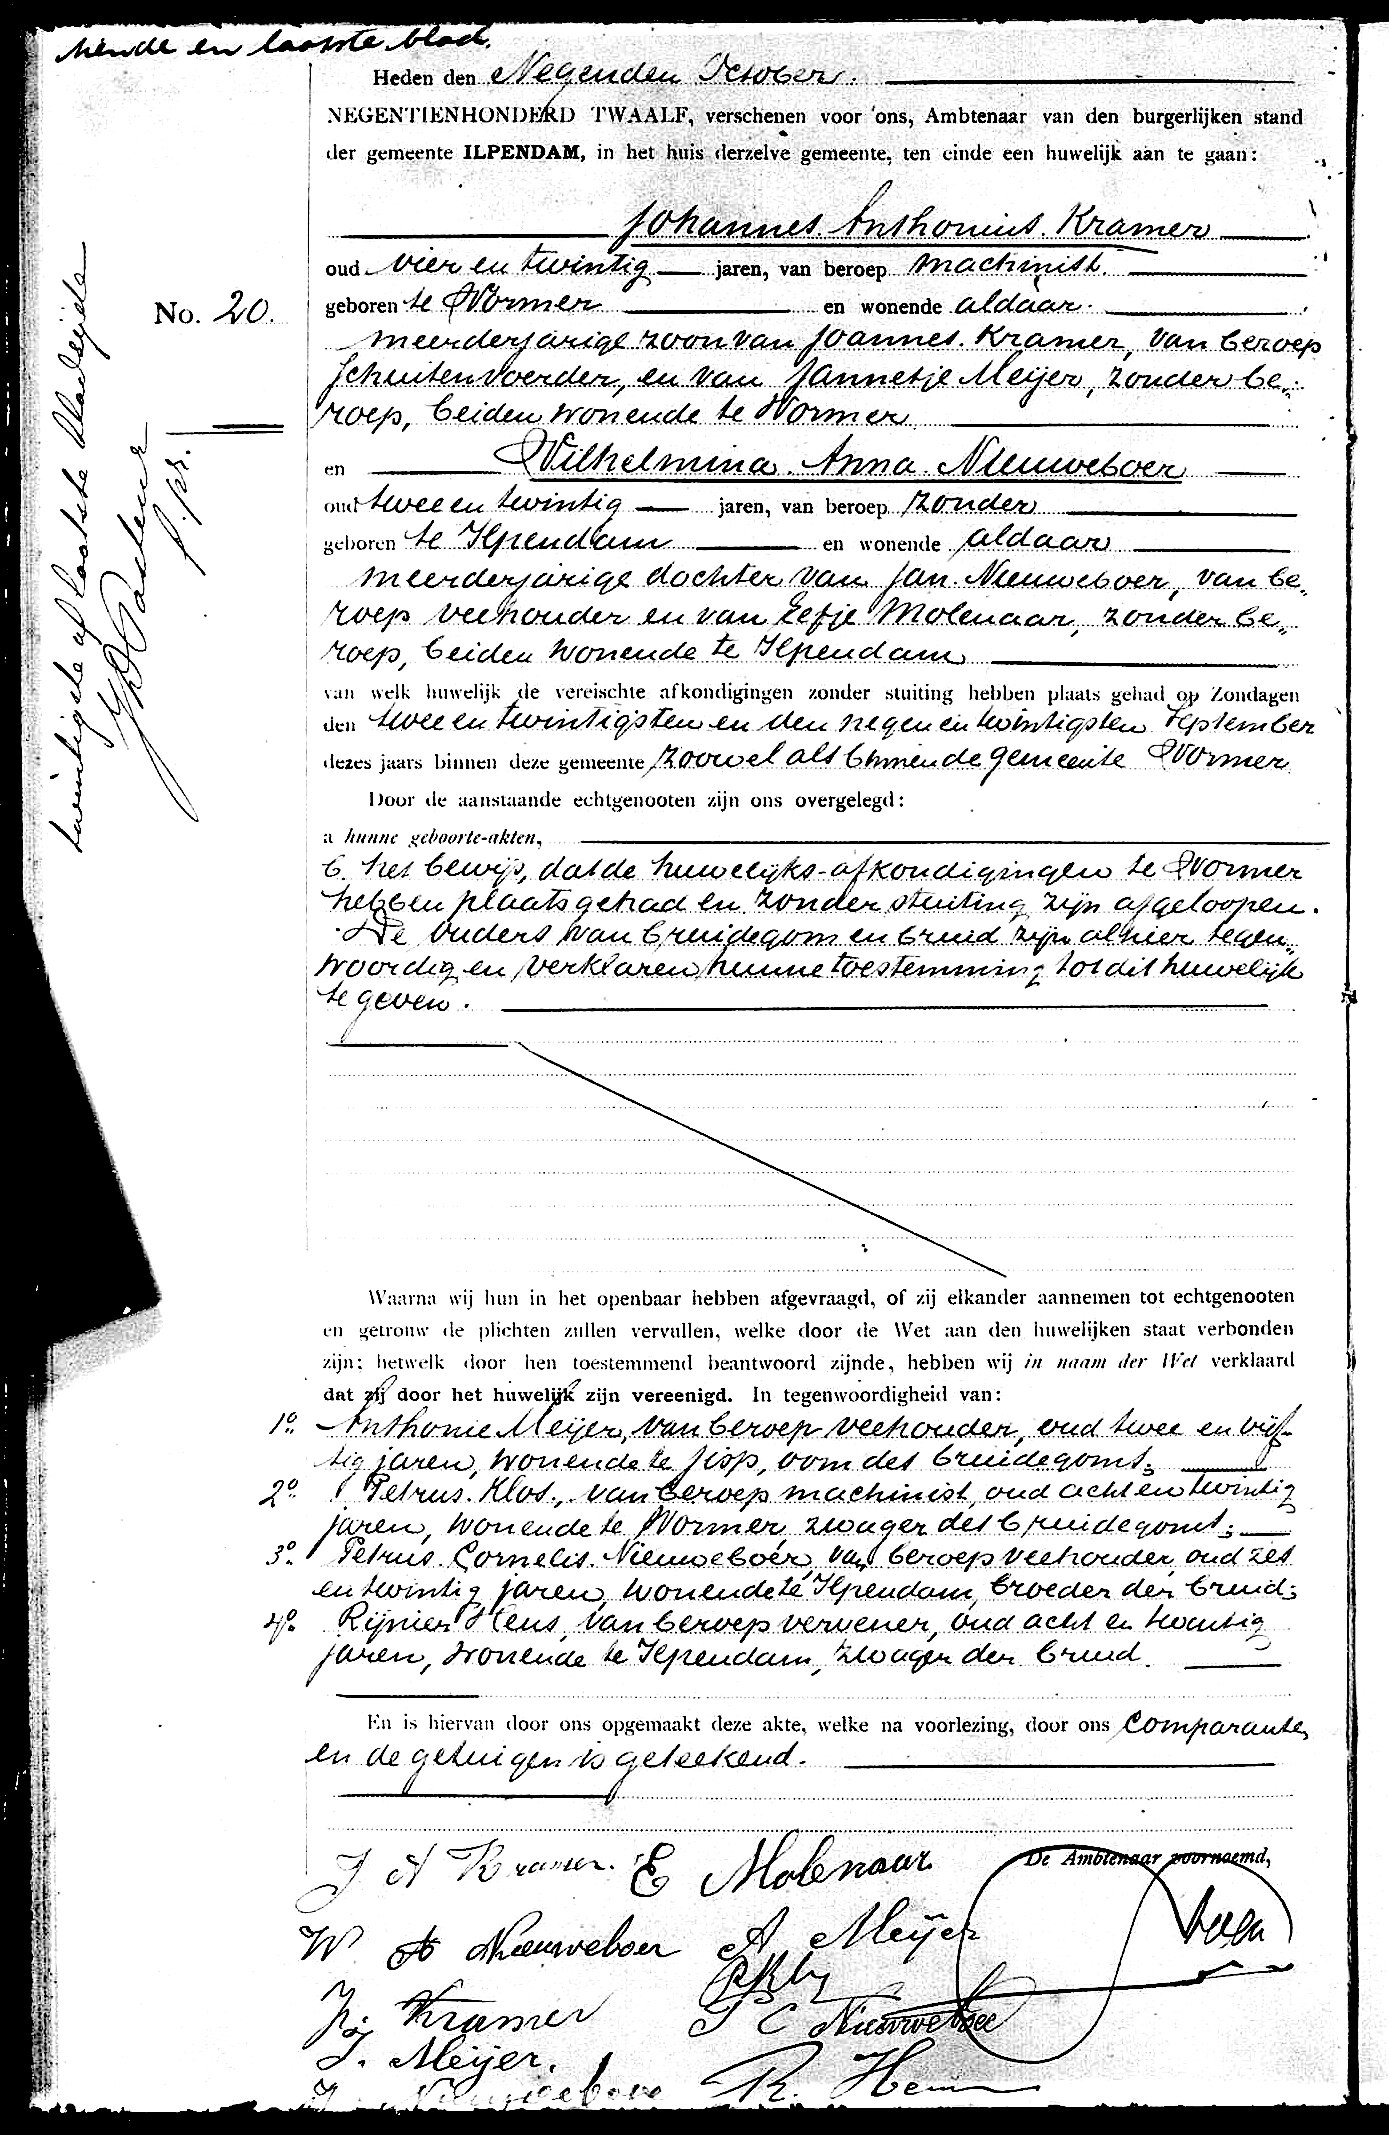 tiende en laatste blad.
Heden den Negenden October.
NEGENTIENHONDERD TWAALF, verschenen voor ons, Ambtenaar van den burgerlijken stand
der gemeente ILPENDAM, in het huis derzelve gemeente, ten einde een huwelijk aan te gaan:
Johannes Anthonius Kramer
oud vier en twintig jaren, van beroep machinist
No. 20.
geboren te Wormer en wonende aldaar.
meerderjarige zoon van Joannes Kramer, van beroep
Schuitenvoerder, en van Jannetje Meijer, zonder be„
roep, beiden wonende te Wormer
en Wilhelmina Anna Nieuweboer
oud twee en twintig jaren, van beroep zonder
geboren te Ilpendam en wonende aldaar
meerderjarige dochter van Jan Nieuweboer, van be„
roep veehouder en van Eefje Molenaar, zonder be„
roep, beiden wonende te Ilpendam
van welk huwelijk de vereischte afkondigingen zonder stuiting hebben plaats gehad op Zondagen
den twee en twintigsten en den negen en twintigsten September
dezes jaars binnen deze gemeente zoowel als binnen de gemeente Wormer
Door de aanstaande echtgenooten zijn ons overgelegd:
a hunne geboorte-akten,
b. het bewijs, dat de huwelijks-afkondigingen te Wormer
hebben plaats gehad en zonder stuiting zijn afgeloopen.
De ouders van bruidegom en bruid zijn alhier tegen„
woordig en verklaren hunne toestemming tot dit huwelijk
te geven.
Waarna wij hun in het openbaar hebben afgevraagd, of zij elkander aannemen tot echtgenooten
en getrouw de plichten zullen vervullen, welke door de Wet aan den huwelijken staat verbonden
zijn; hetwelk door hen toestemmend beantwoord zijnde, hebben wij in naam der Wet verklaard
dat zij door het huwelijk zijn vereenigd. In tegenwoordigheid van:
1o. Anthonie Meijer, van beroep veehouder, oud twee en vijf-
tig jaren, wonende te Jisp, oom des bruidegoms;
2o. Petrus Klos, van beroep machinist, oud acht en twintig
jaren, wonende te Wormer, zwager des bruidegoms;
3o. Petrus Cornelis Nieuweboer, van beroep veehouder, oud zes
en twintig jaren, wonende te Ilpendam, broeder der bruid;
4o. Rijnier Hens, van beroep vervener, oud acht en twintig
jaren, wonende te Ilpendam, zwager der bruid.
En is hiervan door ons opgemaakt deze akte, welke na voorlezing, door ons comparanten
en de getuigen is geteekend.
J A Kramer. E Molenaar De Ambtenaar voornoemd,
W A Nieuweboer A Meijer
Kramer P C Nieuweboer
J. Meijer.
J Nieuweboer R. Hens
twintigste of laatste bladzijde